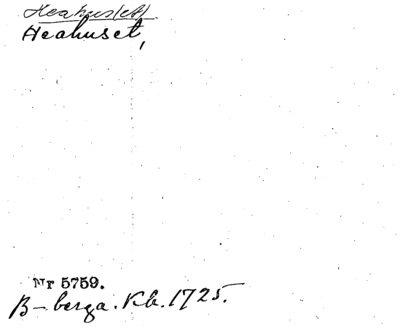 Heahus(et)
Heahuset,
Nr 5759.
B-berga. Kb. 1725.